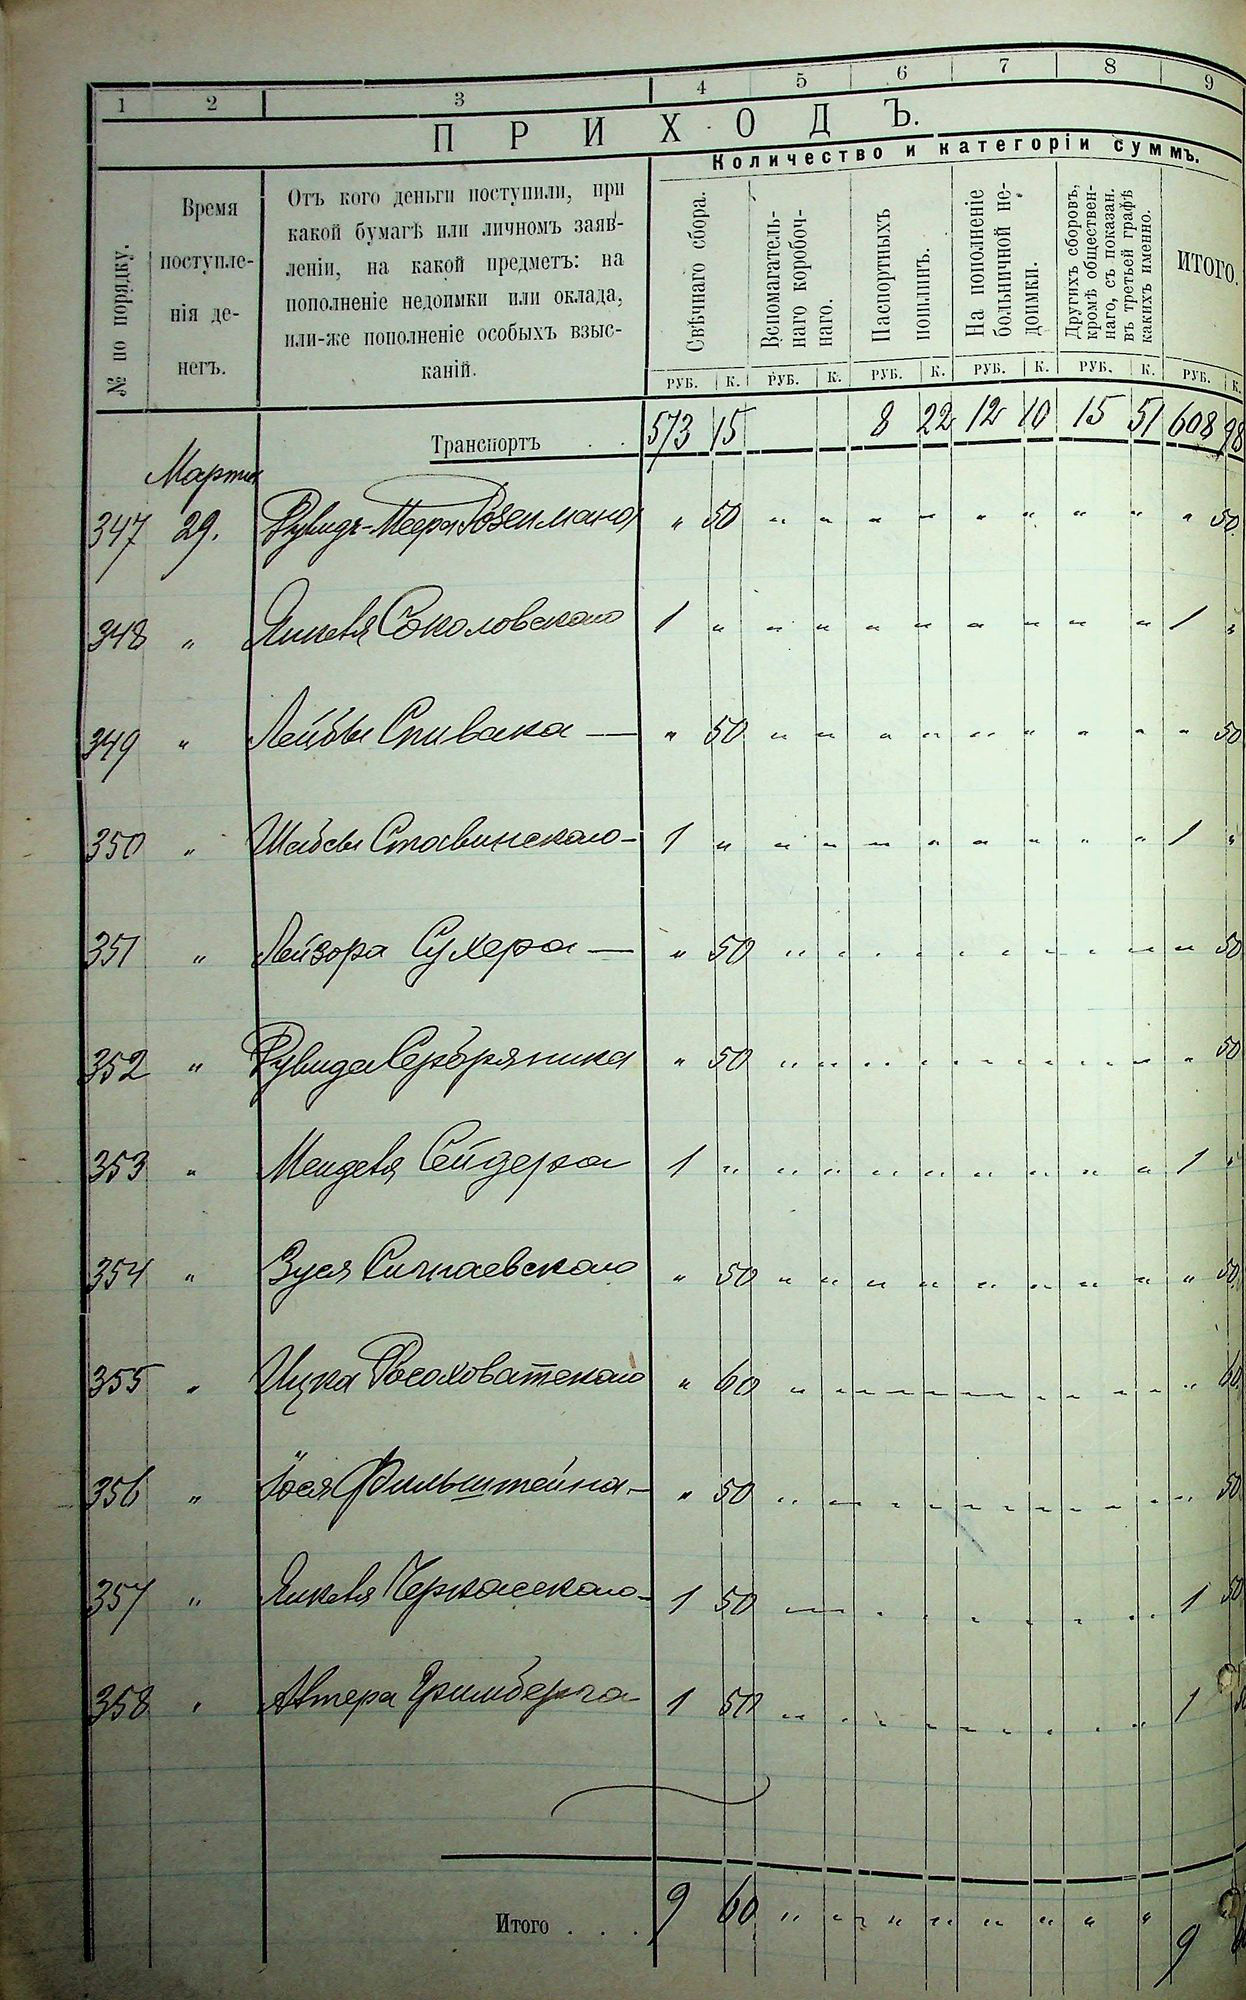 1 2 3 4 5 6 7 8 9
ПРИХОДЪ.
Количество и категоріи суммъ.
№ по порядку.
Время
поступле-
нія де-
негъ.
Отъ кого деньги поступили, при
какой бумагѣ или личномъ заяв-
леніи, на какой предметъ: на
пополненіе недоимки или оклада,
или-же пополненіе особыхъ взыс-
каній.
Свѣчнаго сбора.
Вспомагатель-
наго коробоч-
наго.
Паспортныхъ
пошлинъ.
На пополненіе
больничной не-
доимки.
Другихъ сборовъ,
кромѣ обществен-
наго, съ показан.
въ третьей графѣ
какихъ именно.
ИТОГО.
РУБ. К. РУБ. К. РУБ. К. РУБ. К. РУБ. К. РУБ. К.
Транспортъ . . 573 15 8 22 12 10 15 51 608 98
Марта
347 29. Рувидъ-Меера Розенмана " 50 " " " " " " " " " 50
348 " Янкеля Соколовскаго 1 " " " " " " " " " 1 "
349 " Лейбы Спивака — " 50 " " " " " " " " " 50
350 " Шабсы Ставинскаго — 1 " " " " " " " " " 1 "
351 " Лейзора Сухера — " 50 " " " " " " " " " 50
352 " Рувида Серебряника " 50 " " " " " " " " " 50
353 " Менделя Сейдера 1 " " " " " " " " " 1 "
354 " Зуся " 50 " " " " " " " " " 50
355 " Ицка Росоховатскаго " 60 " " " " " " " " " 60
356 " Іося Фильштейна — " 50 " " " " " " " " " 50
357 " Янкеля Черкасскаго — 1 50 " " " " " " " " 1 50
358 " Алтера Гримберга 1 50 " " " " " " " " 1 50
Итого . . . 9 60 " " " " " " " " 9